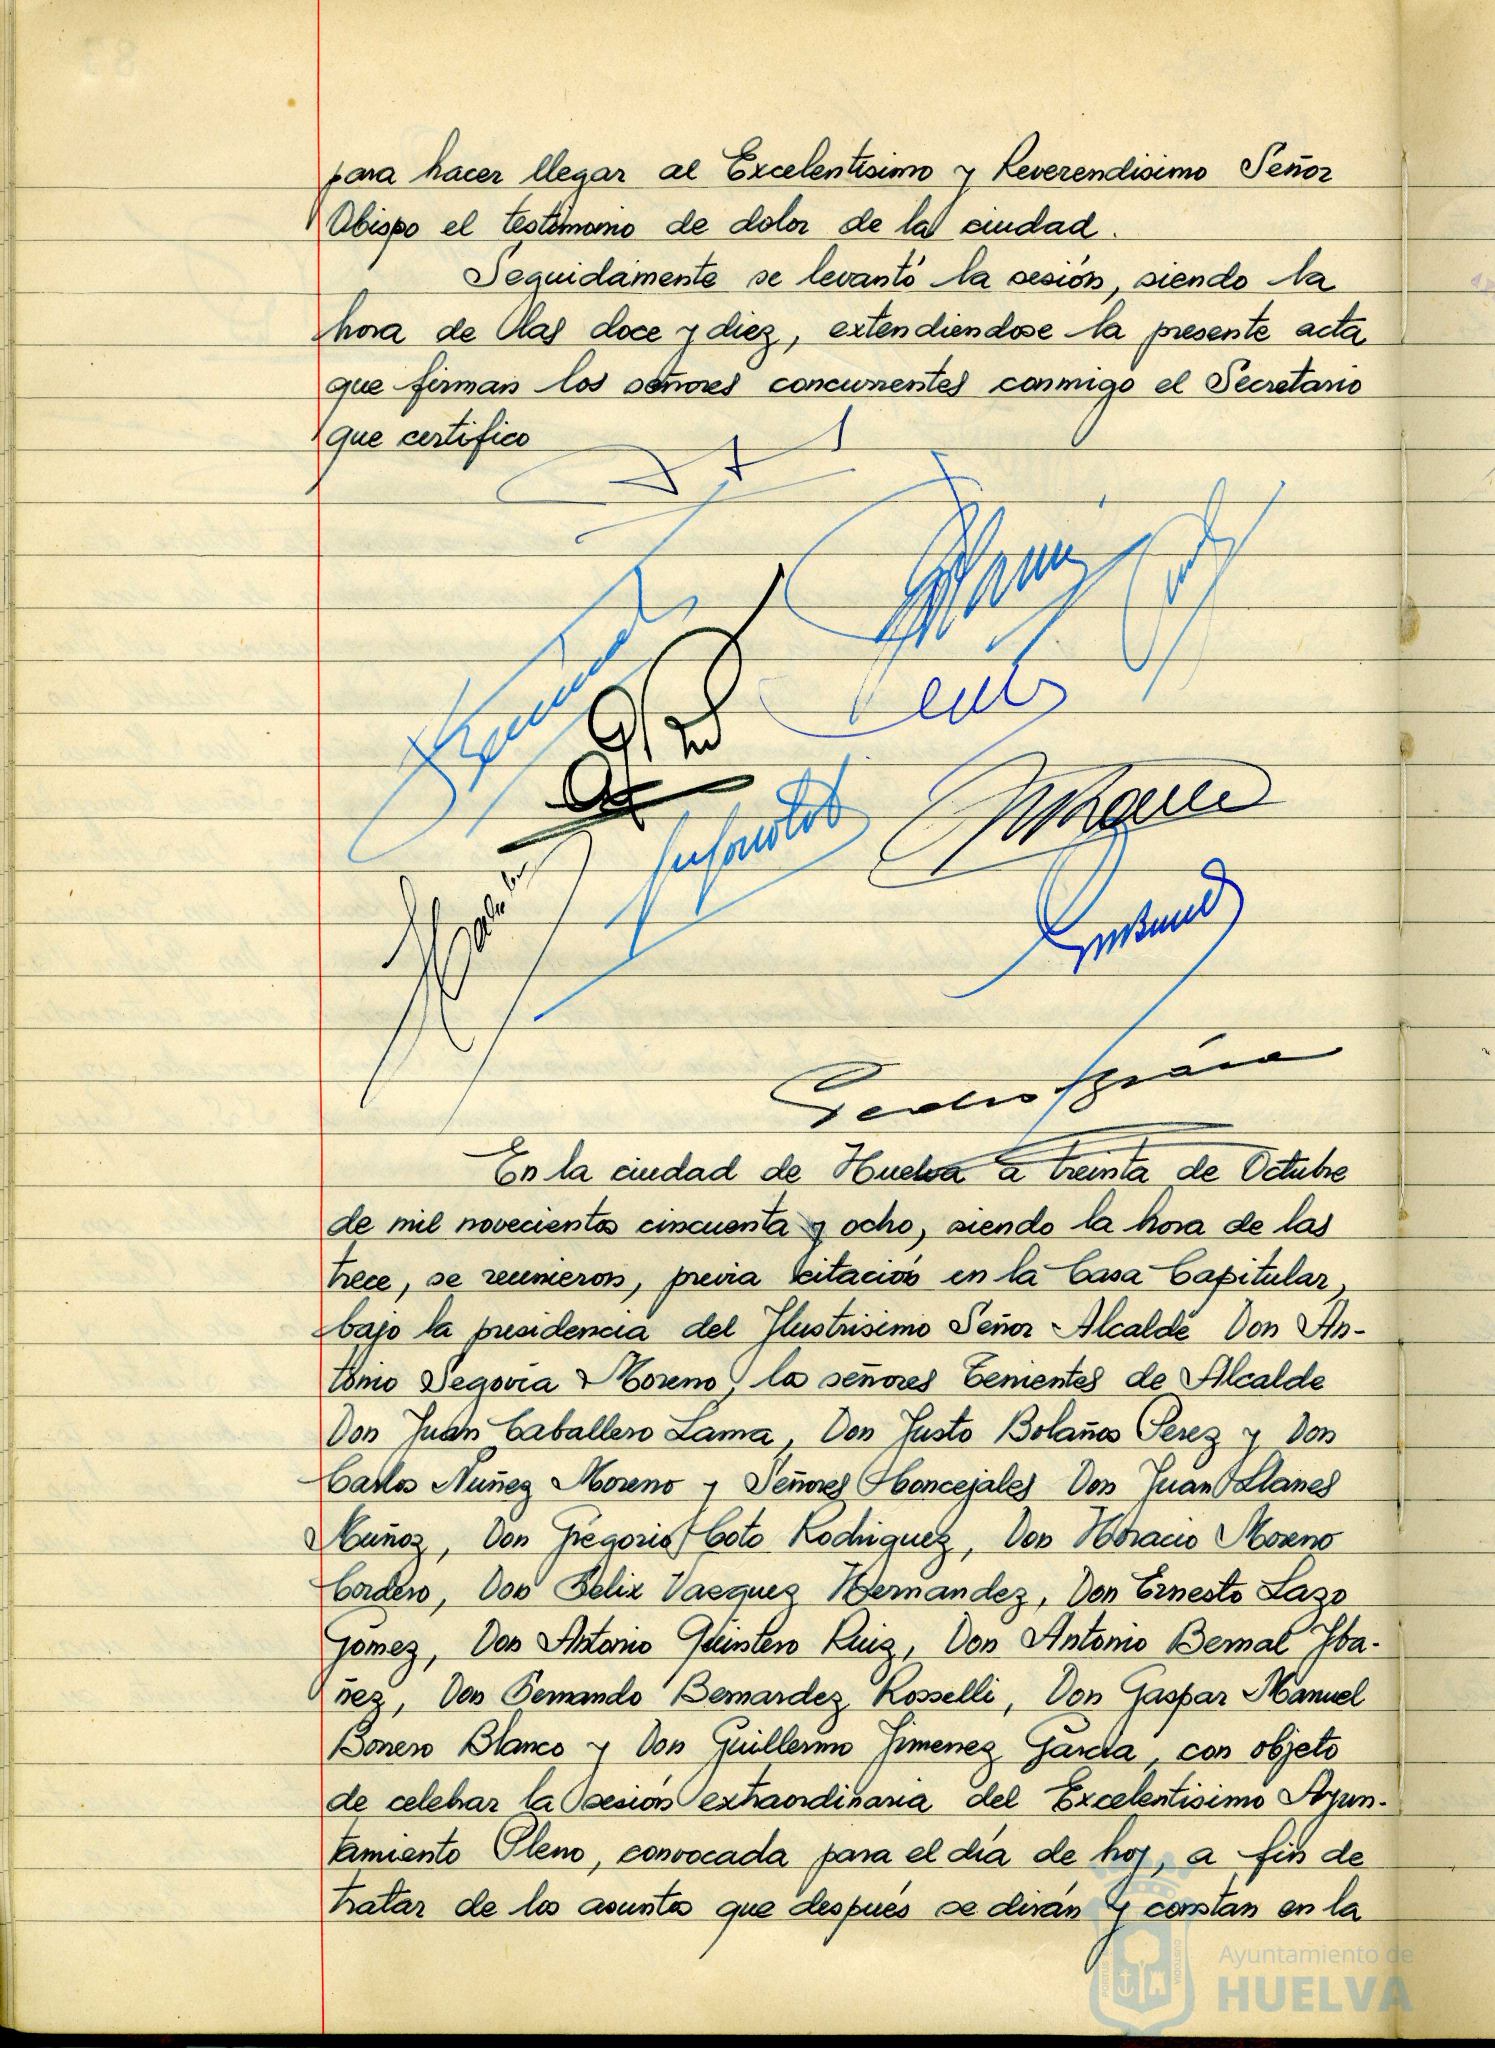 para hacer llegar al Excelentisimo y Reverendisimo Señor
Obispo el testimonio de dolor de la ciudad.
Seguidamente se levantó la sesión, siendo la
hora de las doce y diez, extendiendose la presente acta
que firman los señores concurrentes conmigo el Secretario
que certifico
En la ciudad de Huelva a treinta de Octubre
de mil novecientos cincuenta y ocho, siendo la hora de las
trece, se reunieron, previa citación en la Casa Capitular,
bajo la presidencia del Ilustrisimo Señor Alcalde Don An-
tonio Segovia Moreno, los señores Tenientes de Alcalde
Don Juan Caballero Lama, Don Justo Bolaños Perez y Don
Carlos Nuñez Moreno y Señores Concejales Don Juan Llanes
Muñoz, Don Gregorio Coto Rodriguez, Don Horacio Moreno
Cordero, Don Felix Vazquez Hernandez, Don Ernesto Lazo
Gomez, Don Antonio Quintero Ruiz, Don Antonio Bernal Iba-
ñez, Don Fernando Bernardez Rosselli, Don Gaspar Manuel
Borrero Blanco y Don Guillermo Jimenez Garcia, con objeto
de celebrar la sesión extraordinaria del Excelentisimo Ayun-
tamiento Pleno, convocada para el día de hoy, a fin de
tratar de los asuntos que después se dirán y constan en la
Ayuntamiento de
HUELVA